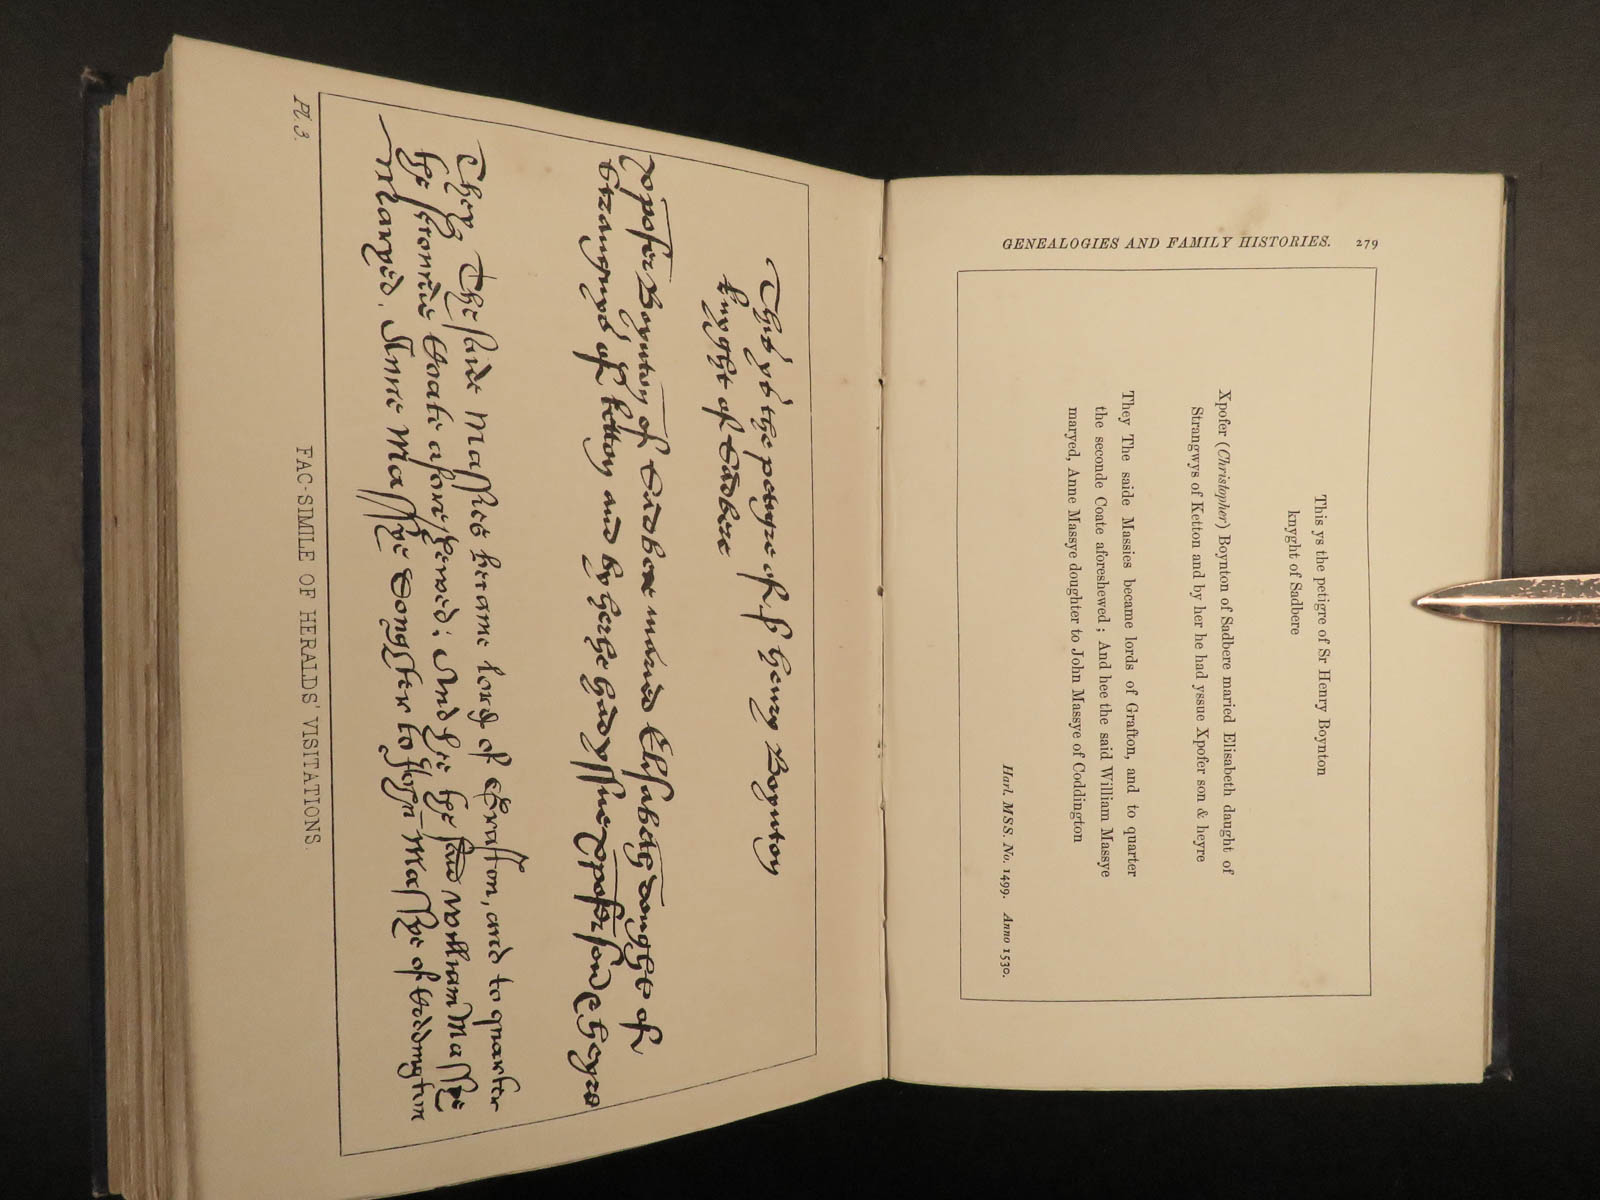 Pl. 3.
This ys the petigre of Sr henry Boynton
knyght of Sadbere
Xpofer Boynton of Sadbere maried Elisabeth dought of
Strangwys of ketton and by her he had yssue Xpofer son & heyre
They The saide Massies became lords of Grafton, and to quarter
the seconde Coate aforeshewed; And hee the said William Massye
maryed, Anne Massye doughter to John Massye of Coddington
FAC-SIMILE OF HERALDS' VISITATIONS.
GENEALOGIES AND FAMILY HISTORIES. 279
This ys the petigre of Sr Henry Boynton
knyght of Sadbere
Xpofer (Christopher) Boynton of Sadbere maried Elisabeth daught of
Strangwys of Ketton and by her he had yssue Xpofer son & heyre
They The saide Massies became lords of Grafton, and to quarter
the seconde Coate aforeshewed; And hee the said William Massye
maryed, Anne Massye doughter to John Massye of Coddington
Harl. MSS. No. 1499. Anno 1530.